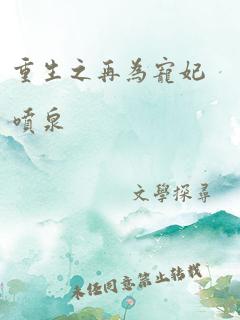 重生之再為寵妃
噴泉
文學探尋
未经同意禁止转载